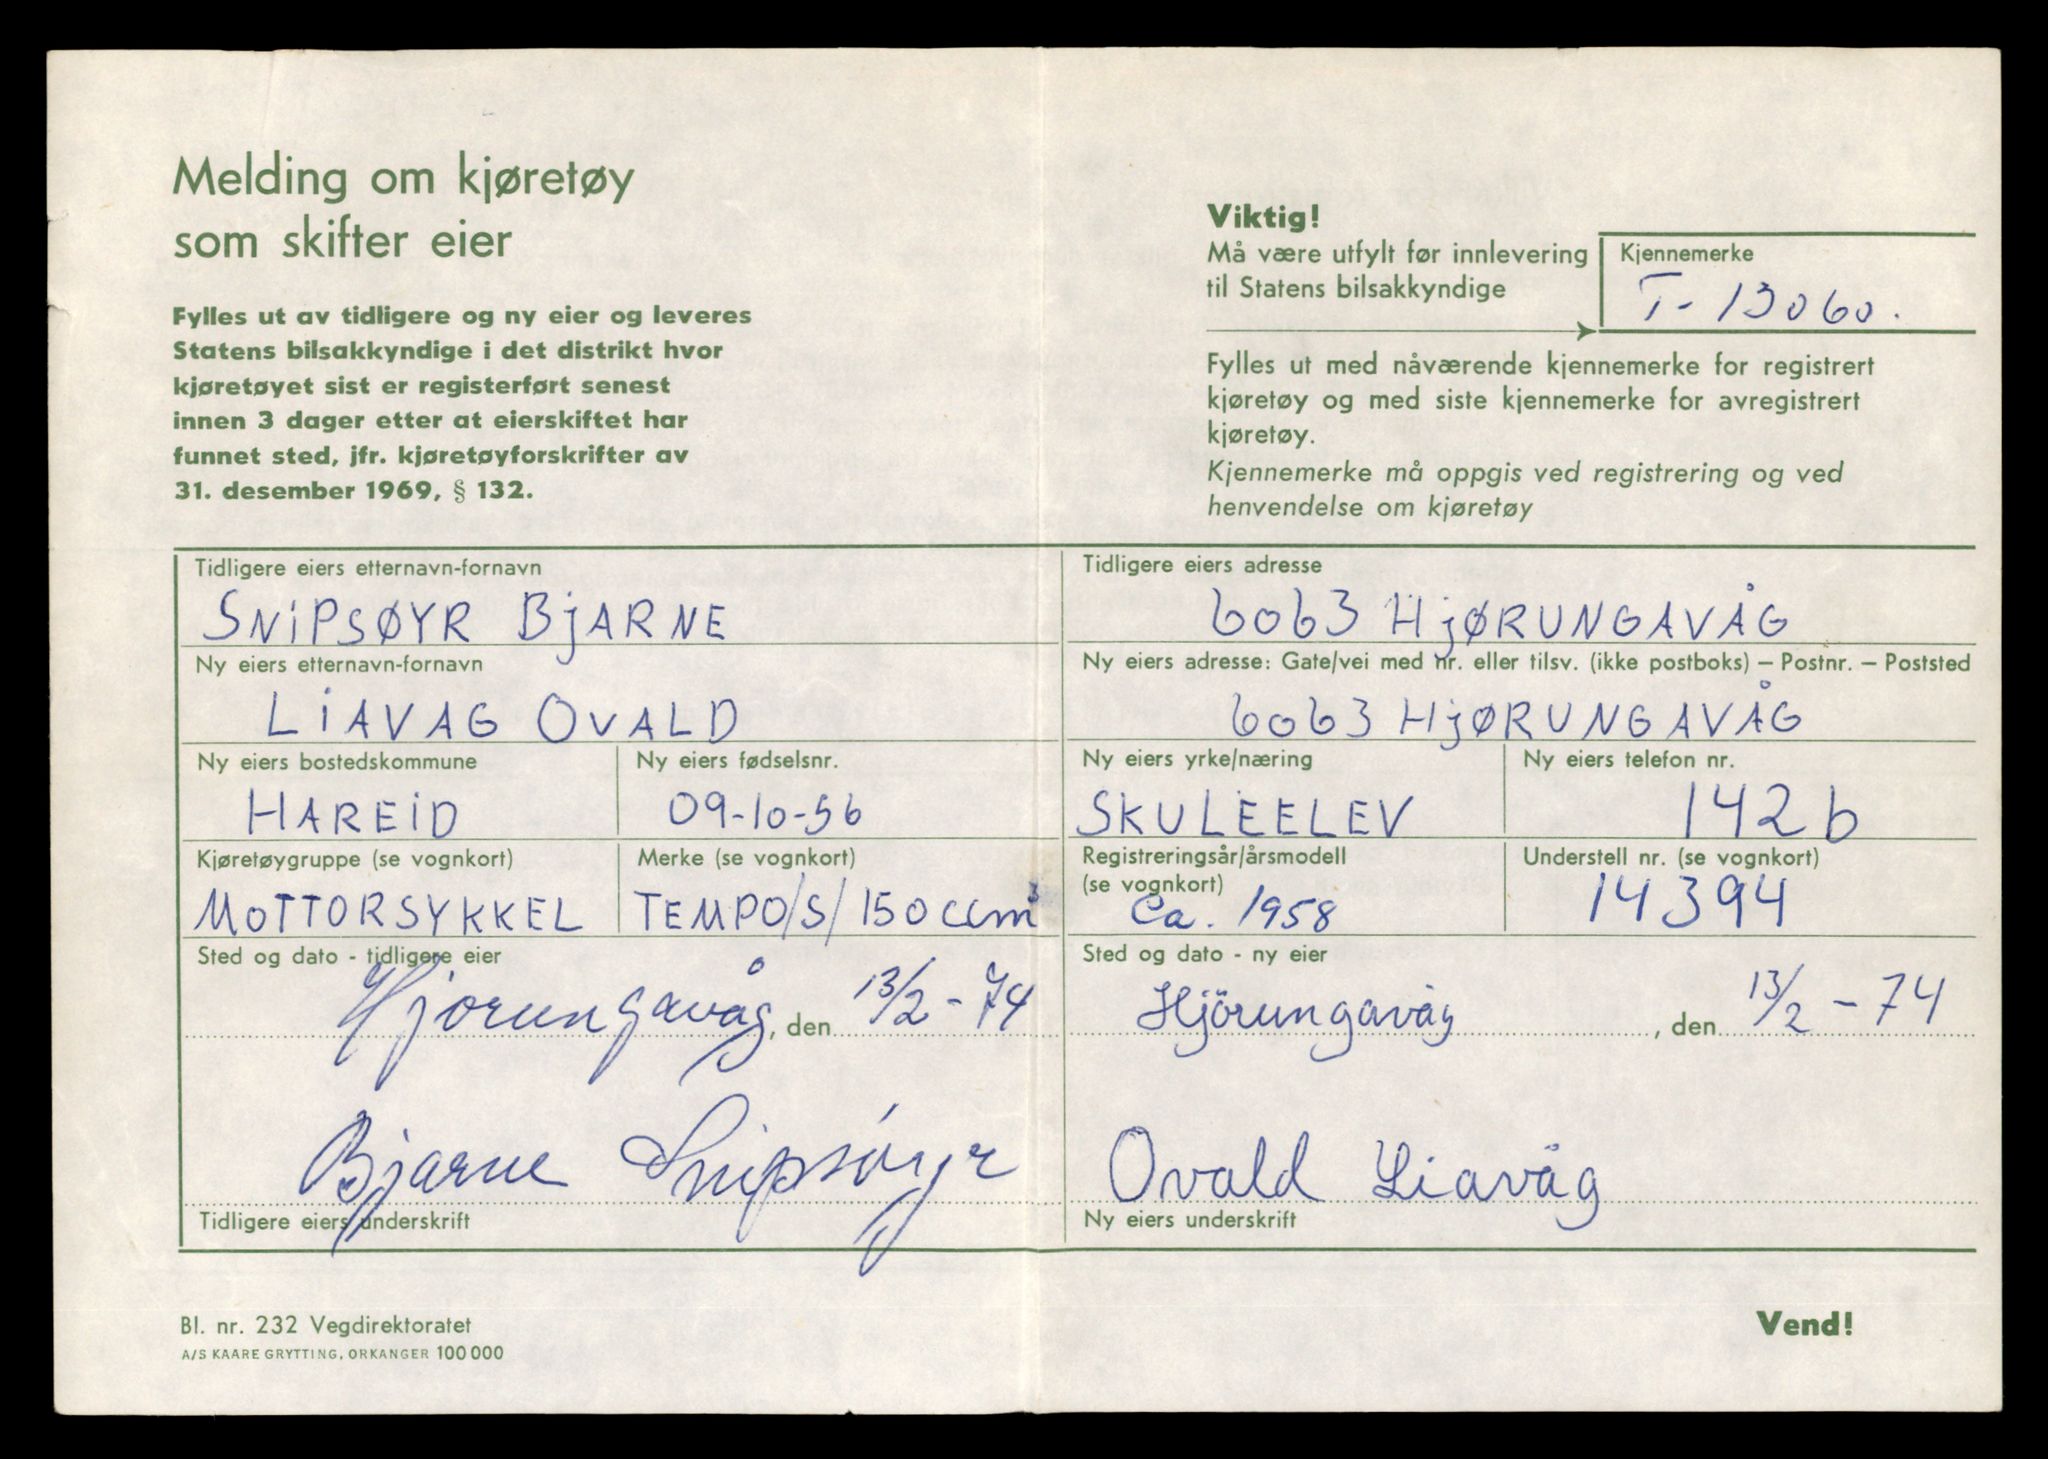 Melding om kjøretøy
som skifter eier
Fylles ut av tidligere og ny eier og leveres
Statens bilsakkyndige i det distrikt hvor
kjøretøyet sist er registerført senest
innen 3 dager etter at eierskiftet har
funnet sted, jfr. kjøretøyforskrifter av
31. desember 1969, § 132.
Viktig!
Må være utfylt før innlevering
til Statens bilsakkyndige
Kjennemerke
T- 13060.
Fylles ut med nåværende kjennemerke for registrert
kjøretøy og med siste kjennemerke for avregistrert
kjøretøy.
Kjennemerke må oppgis ved registrering og ved
henvendelse om kjøretøy
Tidligere eiers etternavn-fornavn
SNIPSØYR BJARNE
Tidligere eiers adresse
6063 HJØRUNGAVÅG
Ny eiers etternavn-fornavn
LIAVAG OVALD
Ny eiers adresse: Gate/vei med nr. eller tilsv. (ikke postboks) – Postnr. – Poststed
6063 HJØRUNGAVÅG
Ny eiers bostedskommune
HAREID
Ny eiers fødselsnr.
09-10-56
Ny eiers yrke/næring
SKULEELEV
Ny eiers telefon nr.
142b
Kjøretøygruppe (se vognkort)
MOTTORSYKKEL
Merke (se vognkort)
TEMPO/S/150ccm³
Registreringsår/årsmodell
(se vognkort)
Ca. 1958
Understell nr. (se vognkort)
14394
Sted og dato - tidligere eier
Hjorungavåg, den 13/2-74
Sted og dato - ny eier
Hjörungavåg, den 13/2-74
Bjarne Snipsóyr
Tidligere eiers underskrift
Ovald Liavåg
Ny eiers underskrift
Bl. nr. 232 Vegdirektoratet
A/S KAARE GRYTTING, ORKANGER 100 000
Vend!